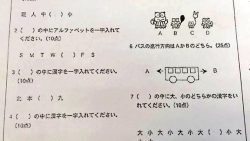 巨 人 中 ( ) 小
2 ( )の中にアルファベットを一字入れて
ください。(10点)
S M T W ( ) F S
3 ( )の中に漢字を一字入れてください。
(10点)
北 本 ( ) 九
4 ( )の中に漢字を一字入れてください。
(10点)
A B C D
6 バスの進行方向はAかBのどちら。(25点)
A B
7 ( )の中に、大、小のどちらかの漢字をい
れてください。(10点)
大 小 大 小 大 小 大 ( ) 小 大 小